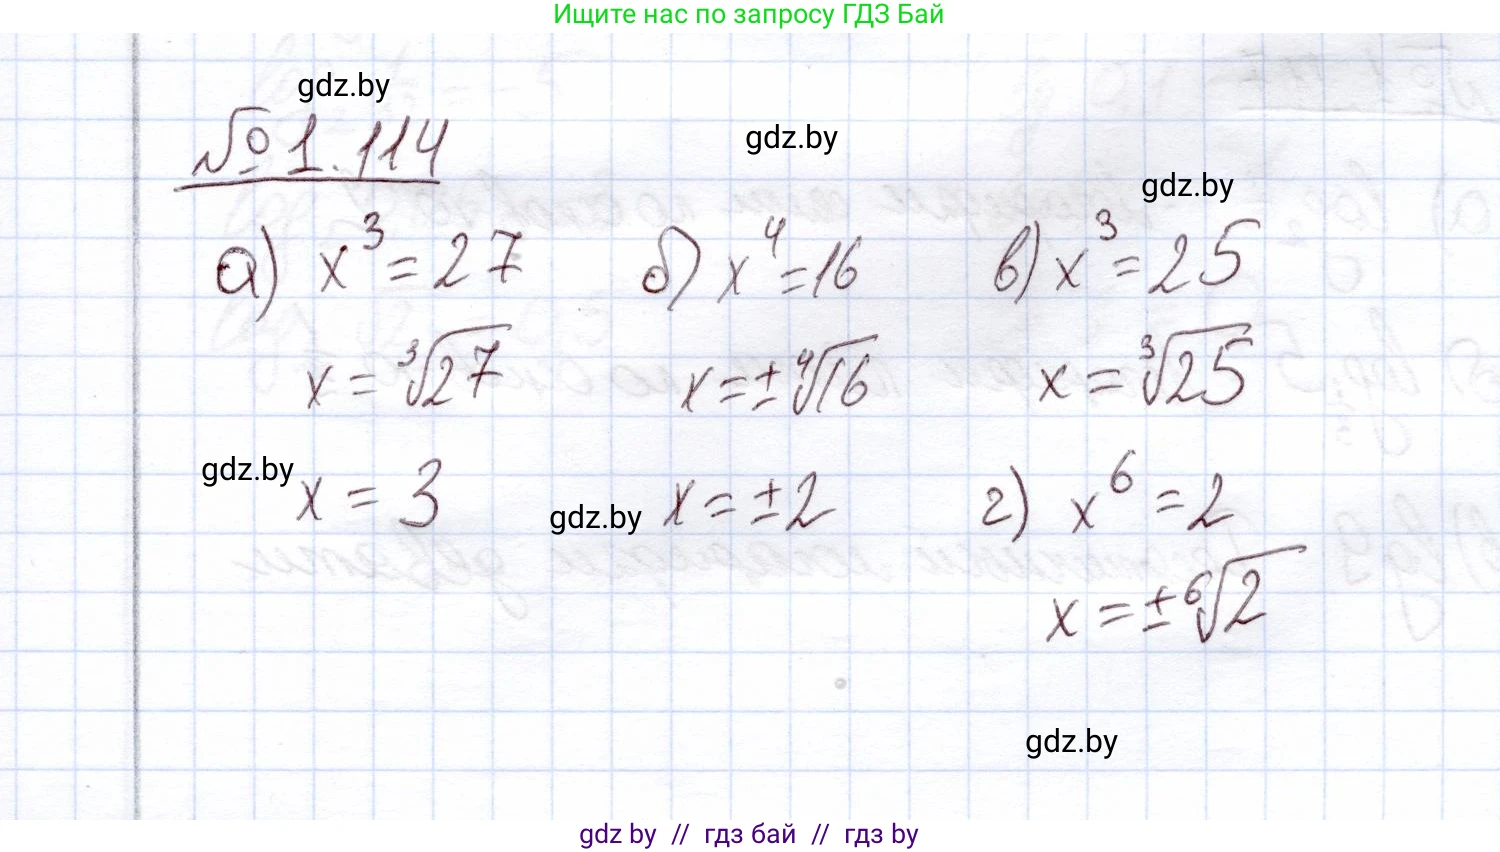 Ищите нас по запросу ГДЗ Бай
gdz.by
№ 1.114
gdz.by
gdz.by
а) x³ = 27
x = ³√27
x = 3
gdz.by
б) x⁴ = 16
x = ± ⁴√16
x = ± 2
gdz.by
в) x³ = 25
x = ³√25
г) x⁶ = 2
x = ± ⁶√2
gdz.by
gdz by // гдз бай // гдз by